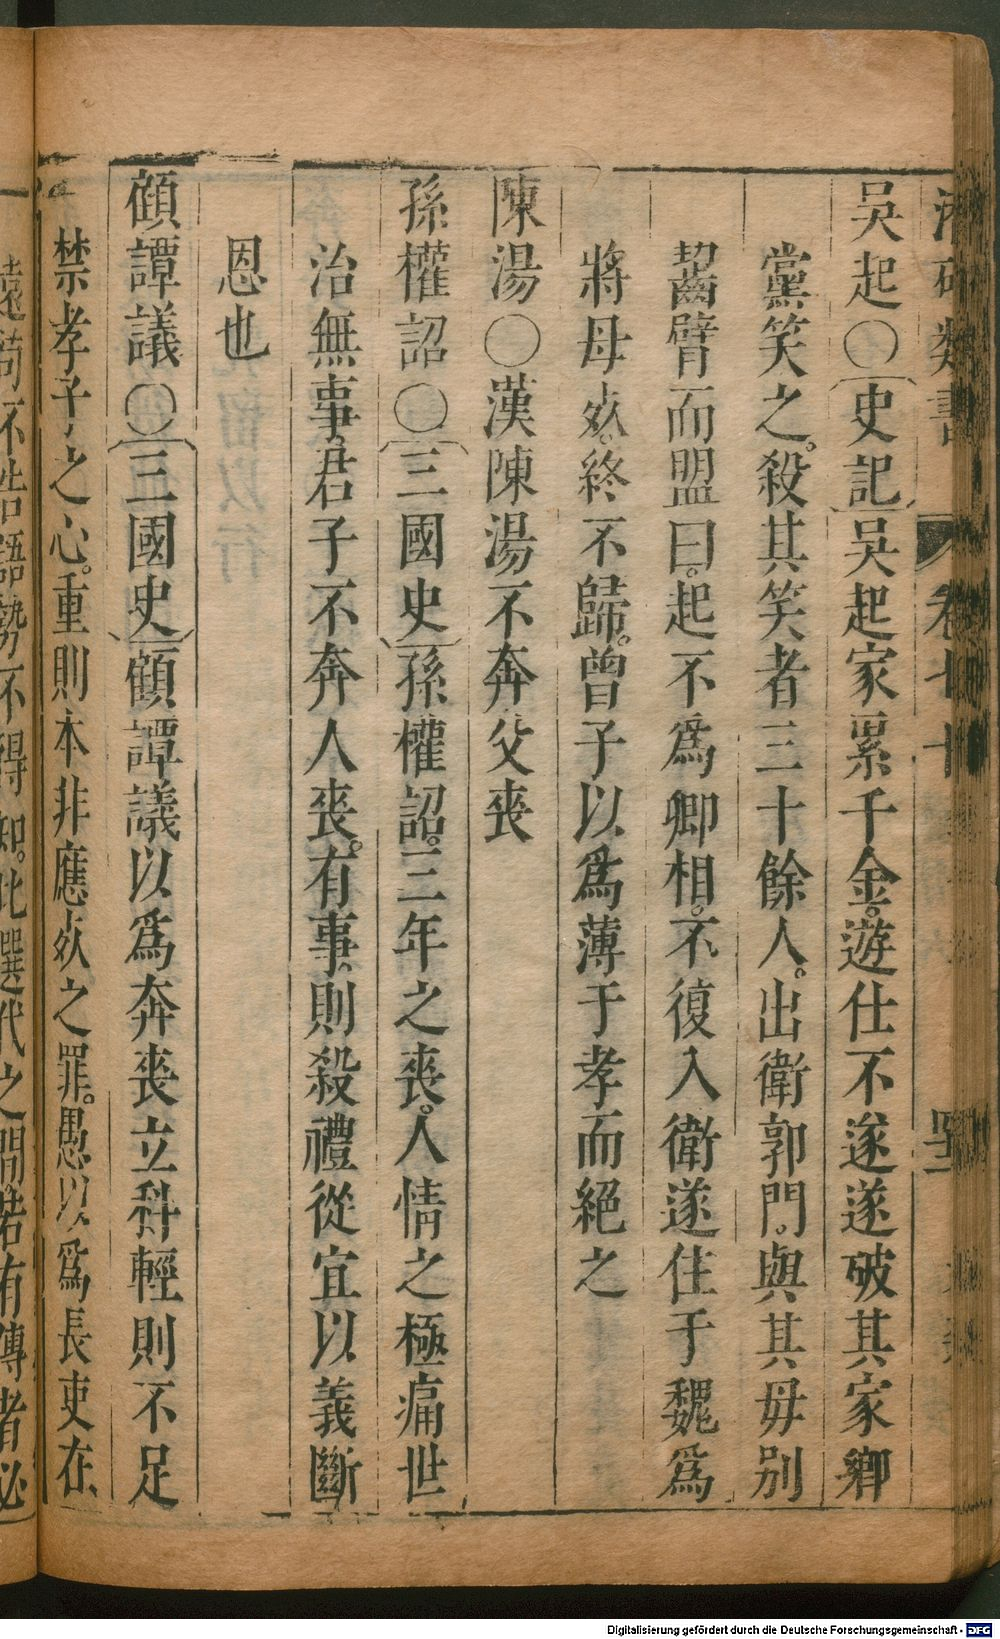 潛確類書 卷七十
吳起○〔史記〕吳起家累千金。遊仕不遂遂破其家鄉
黨笑之。殺其笑者三十餘人。出衛郭門。與其毋別
齧臂而盟曰。起不爲卿相。不復入衛遂徃于魏爲
將母死。終不歸。曾子以爲薄于孝而絕之
陳湯○漢陳湯不奔父喪
孫權詔○〔三國史〕孫權詔。三年之喪。人情之極痛世
治無事。君子不奔人喪。有事。則殺禮從宜以義斷
恩也
顧譚議○〔三國史〕顧譚議以爲奔喪立科輕則不足
禁孝子之心。重則本非應死之罪。愚以爲長吏在
遠苟不告語勢不得知。此選代之間若有傳者必
Digitalisierung gefördert durch die Deutsche Forschungsgemeinschaft - DFG